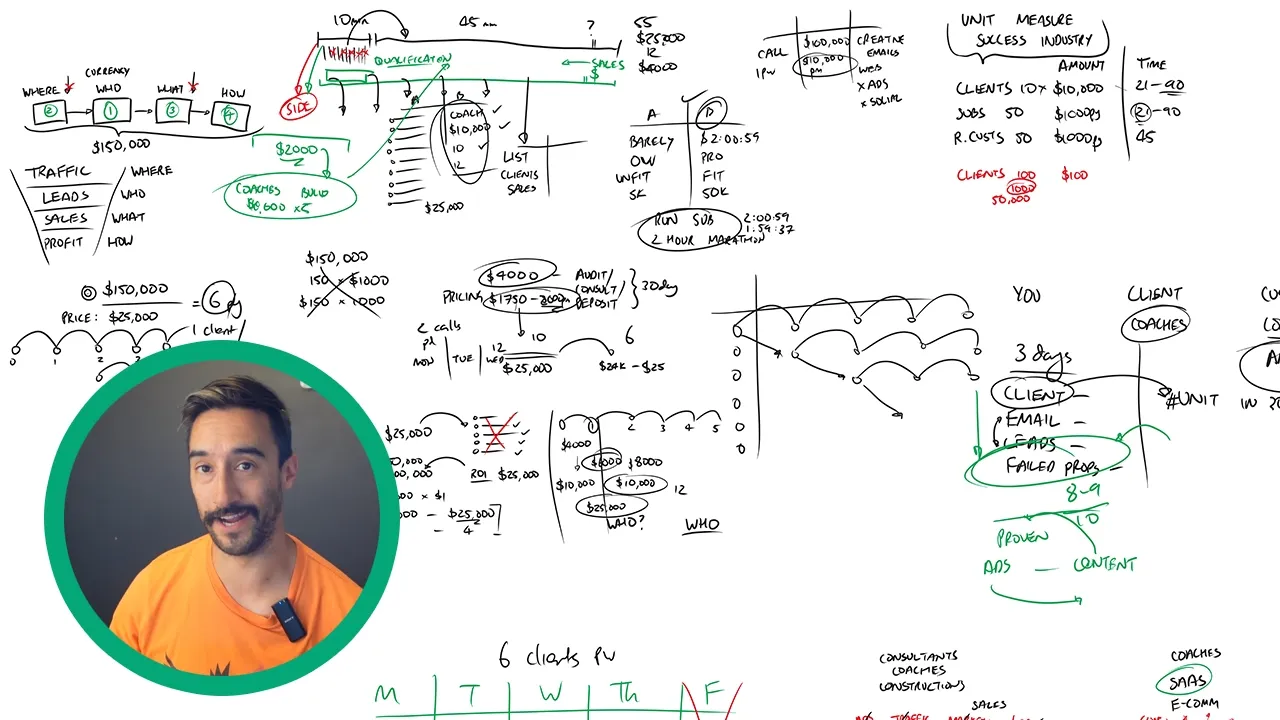 10min
45 min
?
QUALIFICATION
SALES
$
SIDE
55
$25,000
12
$4000
CURRENCY
WHERE WHO WHAT HOW
2 1 3 4
$150,000
$2000
COACHES BUILD
TRAFFIC WHERE
LEADS WHO
SALES WHAT
PROFIT HOW
COACH
$10,000
10
12
$25,000
LIST
CLIENTS
SALES
CALL $100,000 CREATIVE
1PW $10,000 EMAILS
pm WEB
X ADS
X SOCIAL
A B
BARELY 2:00:59
OW PRO
UNFIT FIT
5K 50K
RUN SUB 2:00:59
2 HOUR MARATHON 1:59:37
UNIT MEASURE
SUCCESS INDUSTRY
AMOUNT TIME
CLIENTS 10x $10,000 21-90
JOBS 50 21-90
R.CUSTS 50 45
CLIENTS 100 $100
1000
50,000
$150,000
PRICE: $25,000
= 6
1 client/
0 1 2
$150,000
150 x $1000
$150 x 1000
$4000 - AUDIT/
PRICING $1750 - CONSULT/
DEPOSIT
30day
2 calls
pd
MON TUE WED
12
10
$25,000
6
$24K - $25
$25,000
ROI $25,000
x $1
- $25,000
4
0 1 2 3 4 5
$4000
$8000
$10,000 $10,000 12
$25,000
WHO? WHO
YOU CLIENT
COACHES
3 days
CLIENT -
#UNIT
EMAIL -
LEADS -
FAILED PROPS -
8-9
10
PROVEN
ADS - CONTENT
6 clients PW
M T W Th F
CONSULTANTS
COACHES
CONSTRUCTIONS
SALES
COACHES
SAAS
E-COMM